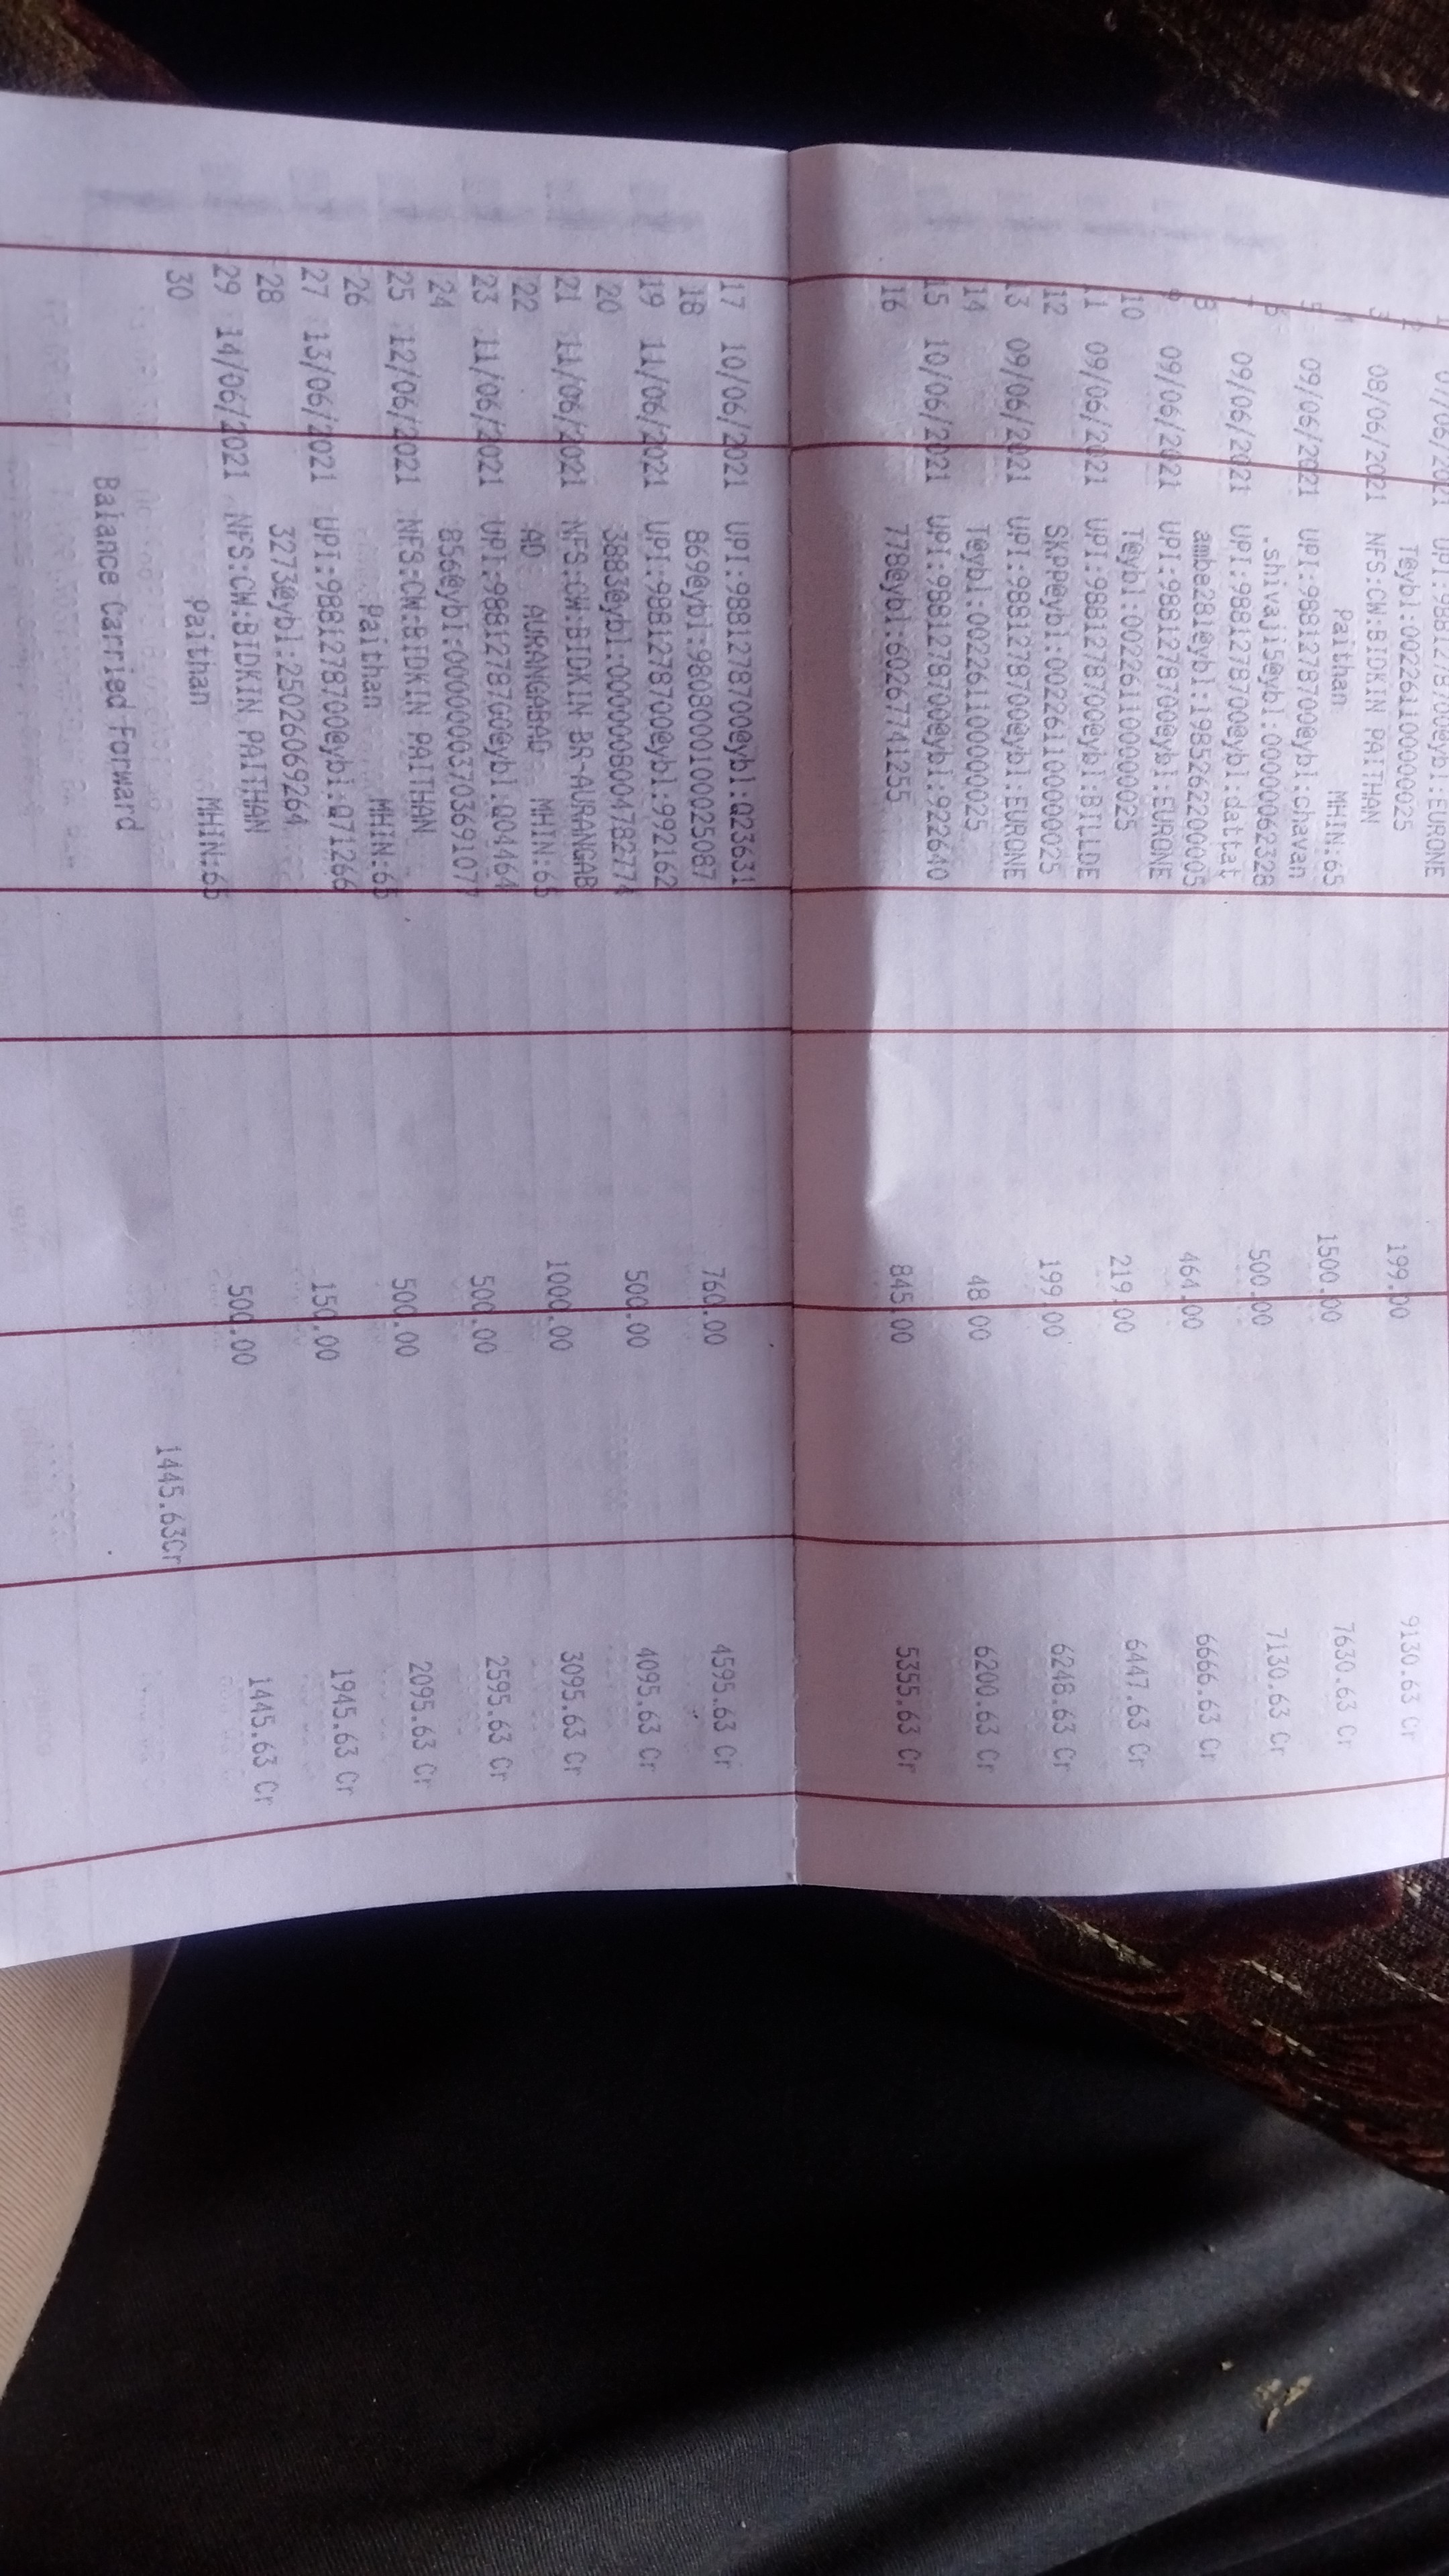 07/06/2021 UPI:9881278700@ybl:EURONE
2 T@ybl:00226110000025 199.00 9130.63 Cr
3 08/06/2021 NFS:CW:BIDKIN PAITHAN
4 Paithan MHIN:65 1500.00 7630.63 Cr
5 09/06/2021 UPI:9881278700@ybl:chavan
6 .shivaji5@ybl:00000062328 500.00 7130.63 Cr
7 09/06/2021 UPI:9881278700@ybl:dattat
8 ambe281@ybl:1985262200005 464.00 6666.63 Cr
9 09/06/2021 UPI:9881278700@ybl:EURONE
10 T@ybl:00226110000025 219.00 6447.63 Cr
11 09/06/2021 UPI:9881278700@ybl:BILLDE
12 SKPP@ybl:00226110000025 199.00 6248.63 Cr
13 09/06/2021 UPI:9881278700@ybl:EURONE
14 T@ybl:00226110000025 48.00 6200.63 Cr
15 10/06/2021 UPI:9881278700@ybl:922640
16 778@ybl:60267741255 845.00 5355.63 Cr
17 10/06/2021 UPI:9881278700@ybl:Q23631
18 869@ybl:9808000100025087 760.00 4595.63 Cr
19 11/06/2021 UPI:9881278700@ybl:992162
20 3883@ybl:0000008004782774 500.00 4095.63 Cr
21 11/06/2021 NFS:CW:BIDKIN BR-AURANGAB
22 AD AURANGABAD MHIN:65 1000.00 3095.63 Cr
23 11/06/2021 UPI:9881278700@ybl:Q04464
24 856@ybl:0000003703691077 500.00 2595.63 Cr
25 12/06/2021 NFS:CW:BIDKIN PAITHAN
26 Paithan MHIN:65 500.00 2095.63 Cr
27 13/06/2021 UPI:9881278700@ybl:Q71266
28 3273@ybl:25026069264 150.00 1945.63 Cr
29 14/06/2021 NFS:CW:BIDKIN PAITHAN
30 Paithan MHIN:65 500.00 1445.63 Cr
Balance Carried Forward 1445.63Cr